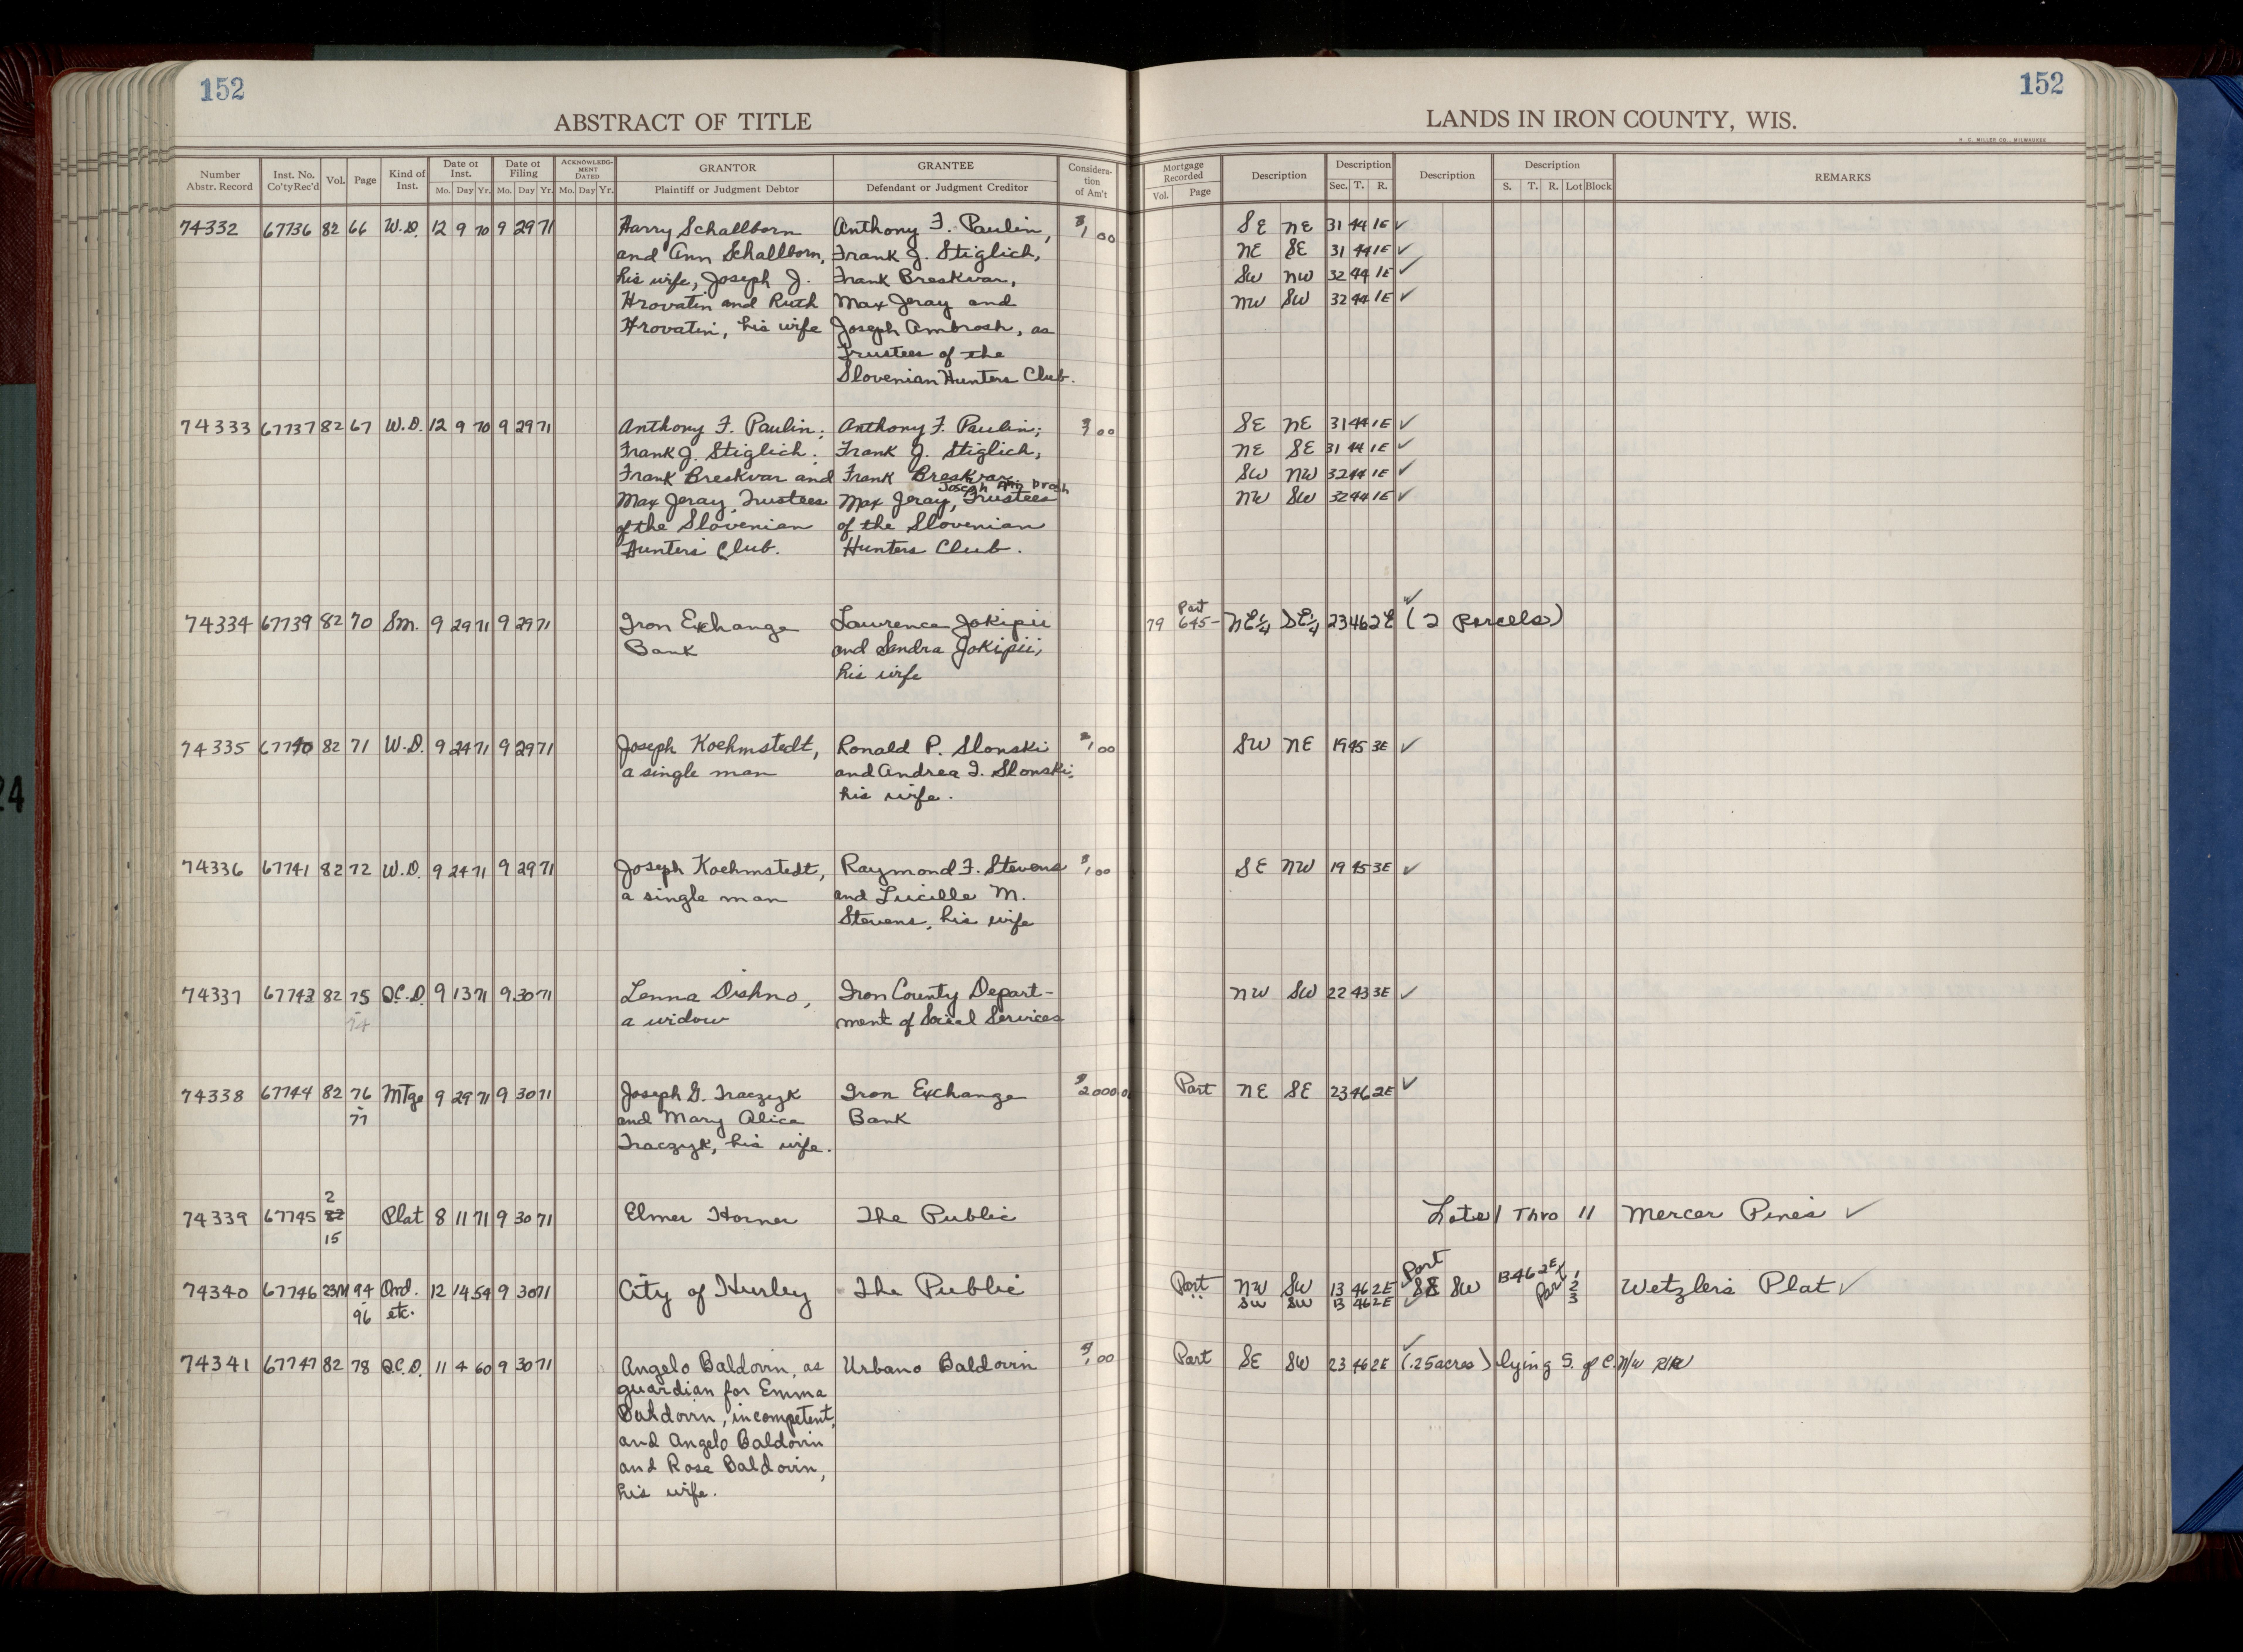 152
ABSTRACT OF TITLE
Number Abstr. Record | Inst. No. Co'ty Rec'd | Vol. | Page | Kind of Inst. | Date of Inst. Mo. Day Yr. | Date of Filing Mo. Day Yr. | ACKNOWLEDGMENT DATED Mo. Day Yr. | GRANTOR Plaintiff or Judgment Debtor | GRANTEE Defendant or Judgment Creditor | Consideration of Am't
152
LANDS IN IRON COUNTY, WIS.
H. C. MILLER CO., MILWAUKEE
Mortgage Recorded Vol. Page | Description | Description Sec. T. R. | Description | Description S. T. R. Lot Block | REMARKS
74332 67736 82 66 W.D. 12 9 70 9 29 71 Harry Schallborn Anthony F. Paulin, $1,00 SE NE 31 44 1E ✓
and Ann Schallborn, Frank J. Stiglich, NE SE 31 44 1E ✓
his wife, Joseph J. Frank Breskvar, SW NW 32 44 1E ✓
Hrovatin and Ruth Max Jeray and NW SW 32 44 1E ✓
Hrovatin, his wife Joseph Ambrosh, as
Trustees of the
Slovenian Hunters Club.
74333 67737 82 67 W.D. 12 9 70 9 29 71 Anthony F. Paulin; Anthony F. Paulin; $1,00 SE NE 31 44 1E ✓
Frank J. Stiglich; Frank J. Stiglich, NE SE 31 44 1E ✓
Frank Breskvar and Frank Breskvar, SW NW 32 44 1E ✓
Joseph Ambrosh
Max Jeray, Trustees Max Jeray, Trustees NW SW 32 44 1E ✓
of the Slovenian of the Slovenian
Hunters' Club. Hunters Club.
Part ✓
74334 67739 82 70 Sm. 9 29 71 9 29 71 Iron Exchange Lawrence Jokipii 79 645- NE¼ SE¼ 23 46 2E (2 Parcels)
Bank and Sandra Jokipii,
his wife
74335 67740 82 71 W.D. 9 24 71 9 29 71 Joseph Koehmstedt, Ronald P. Slonski $1,00 SW NE 19 45 3E ✓
a single man and Andrea I. Slonski,
his wife.
74336 67741 82 72 W.D. 9 24 71 9 29 71 Joseph Koehmstedt, Raymond F. Stevens $1,00 SE NW 19 45 3E ✓
a single man and Lucille M.
Stevens, his wife
74337 67743 82 75 Q.C.D. 9 13 71 9 30 71 Lenna Dishno, Iron County Depart- NW SW 22 43 3E ✓
-74 a widow ment of Social Services
74338 67744 82 76 Mtge 9 29 71 9 30 71 Joseph G. Traczyk Iron Exchange $2000.0 Part NE SE 23 46 2E ✓
-77 and Mary Alice Bank
Traczyk, his wife.
2
74339 67745 82 Plat 8 11 71 9 30 71 Elmer Horner The Public Lots 1 Thro 11 Mercer Pines ✓
15
Part
74340 67746 23M 94 Ord. 12 14 54 9 30 71 City of Hurley The Public Part NW SW 13 46 2E SE SW 13 46 2E Part 1 2 3 Wetzler's Plat ✓
-96 etc. " SW SW 13 46 2E ✓
74341 67747 82 78 Q.C.D. 11 4 60 9 30 71 Angelo Baldovin, as Urbano Baldovin $1,00 Part SE SW 23 46 2E ✓ (.25 acres) lying S. of C. N/W RR
guardian for Emma
Baldovin, incompetent,
and Angelo Baldovin
and Rose Baldovin,
his wife.
24